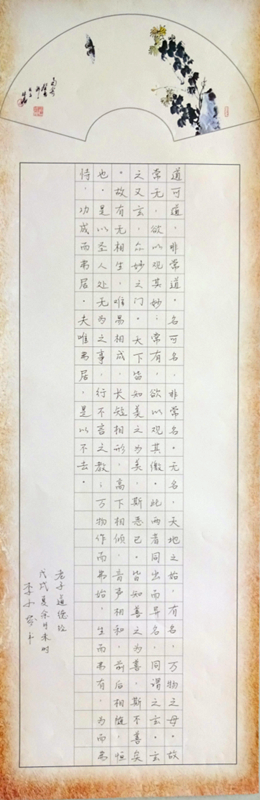 道可道，非常道。名可名，非常名。无名，天地之始，有名，万物之母。故
常无，欲以观其妙；常有，欲以观其徼。此两者同出而异名，同谓之玄，玄
之又玄，众妙之门。天下皆知美之为美，斯恶已。皆知善之为善，斯不善矣
。故有无相生，难易相成，长短相形，高下相倾，音声相和，前后相随，恒
也。是以圣人处无为之事，行不言之教；万物作而弗始，生而弗有，为而弗
恃，功成而弗居。夫唯弗居，是以不去。
老子道德经
戊戌夏余月未时
李子